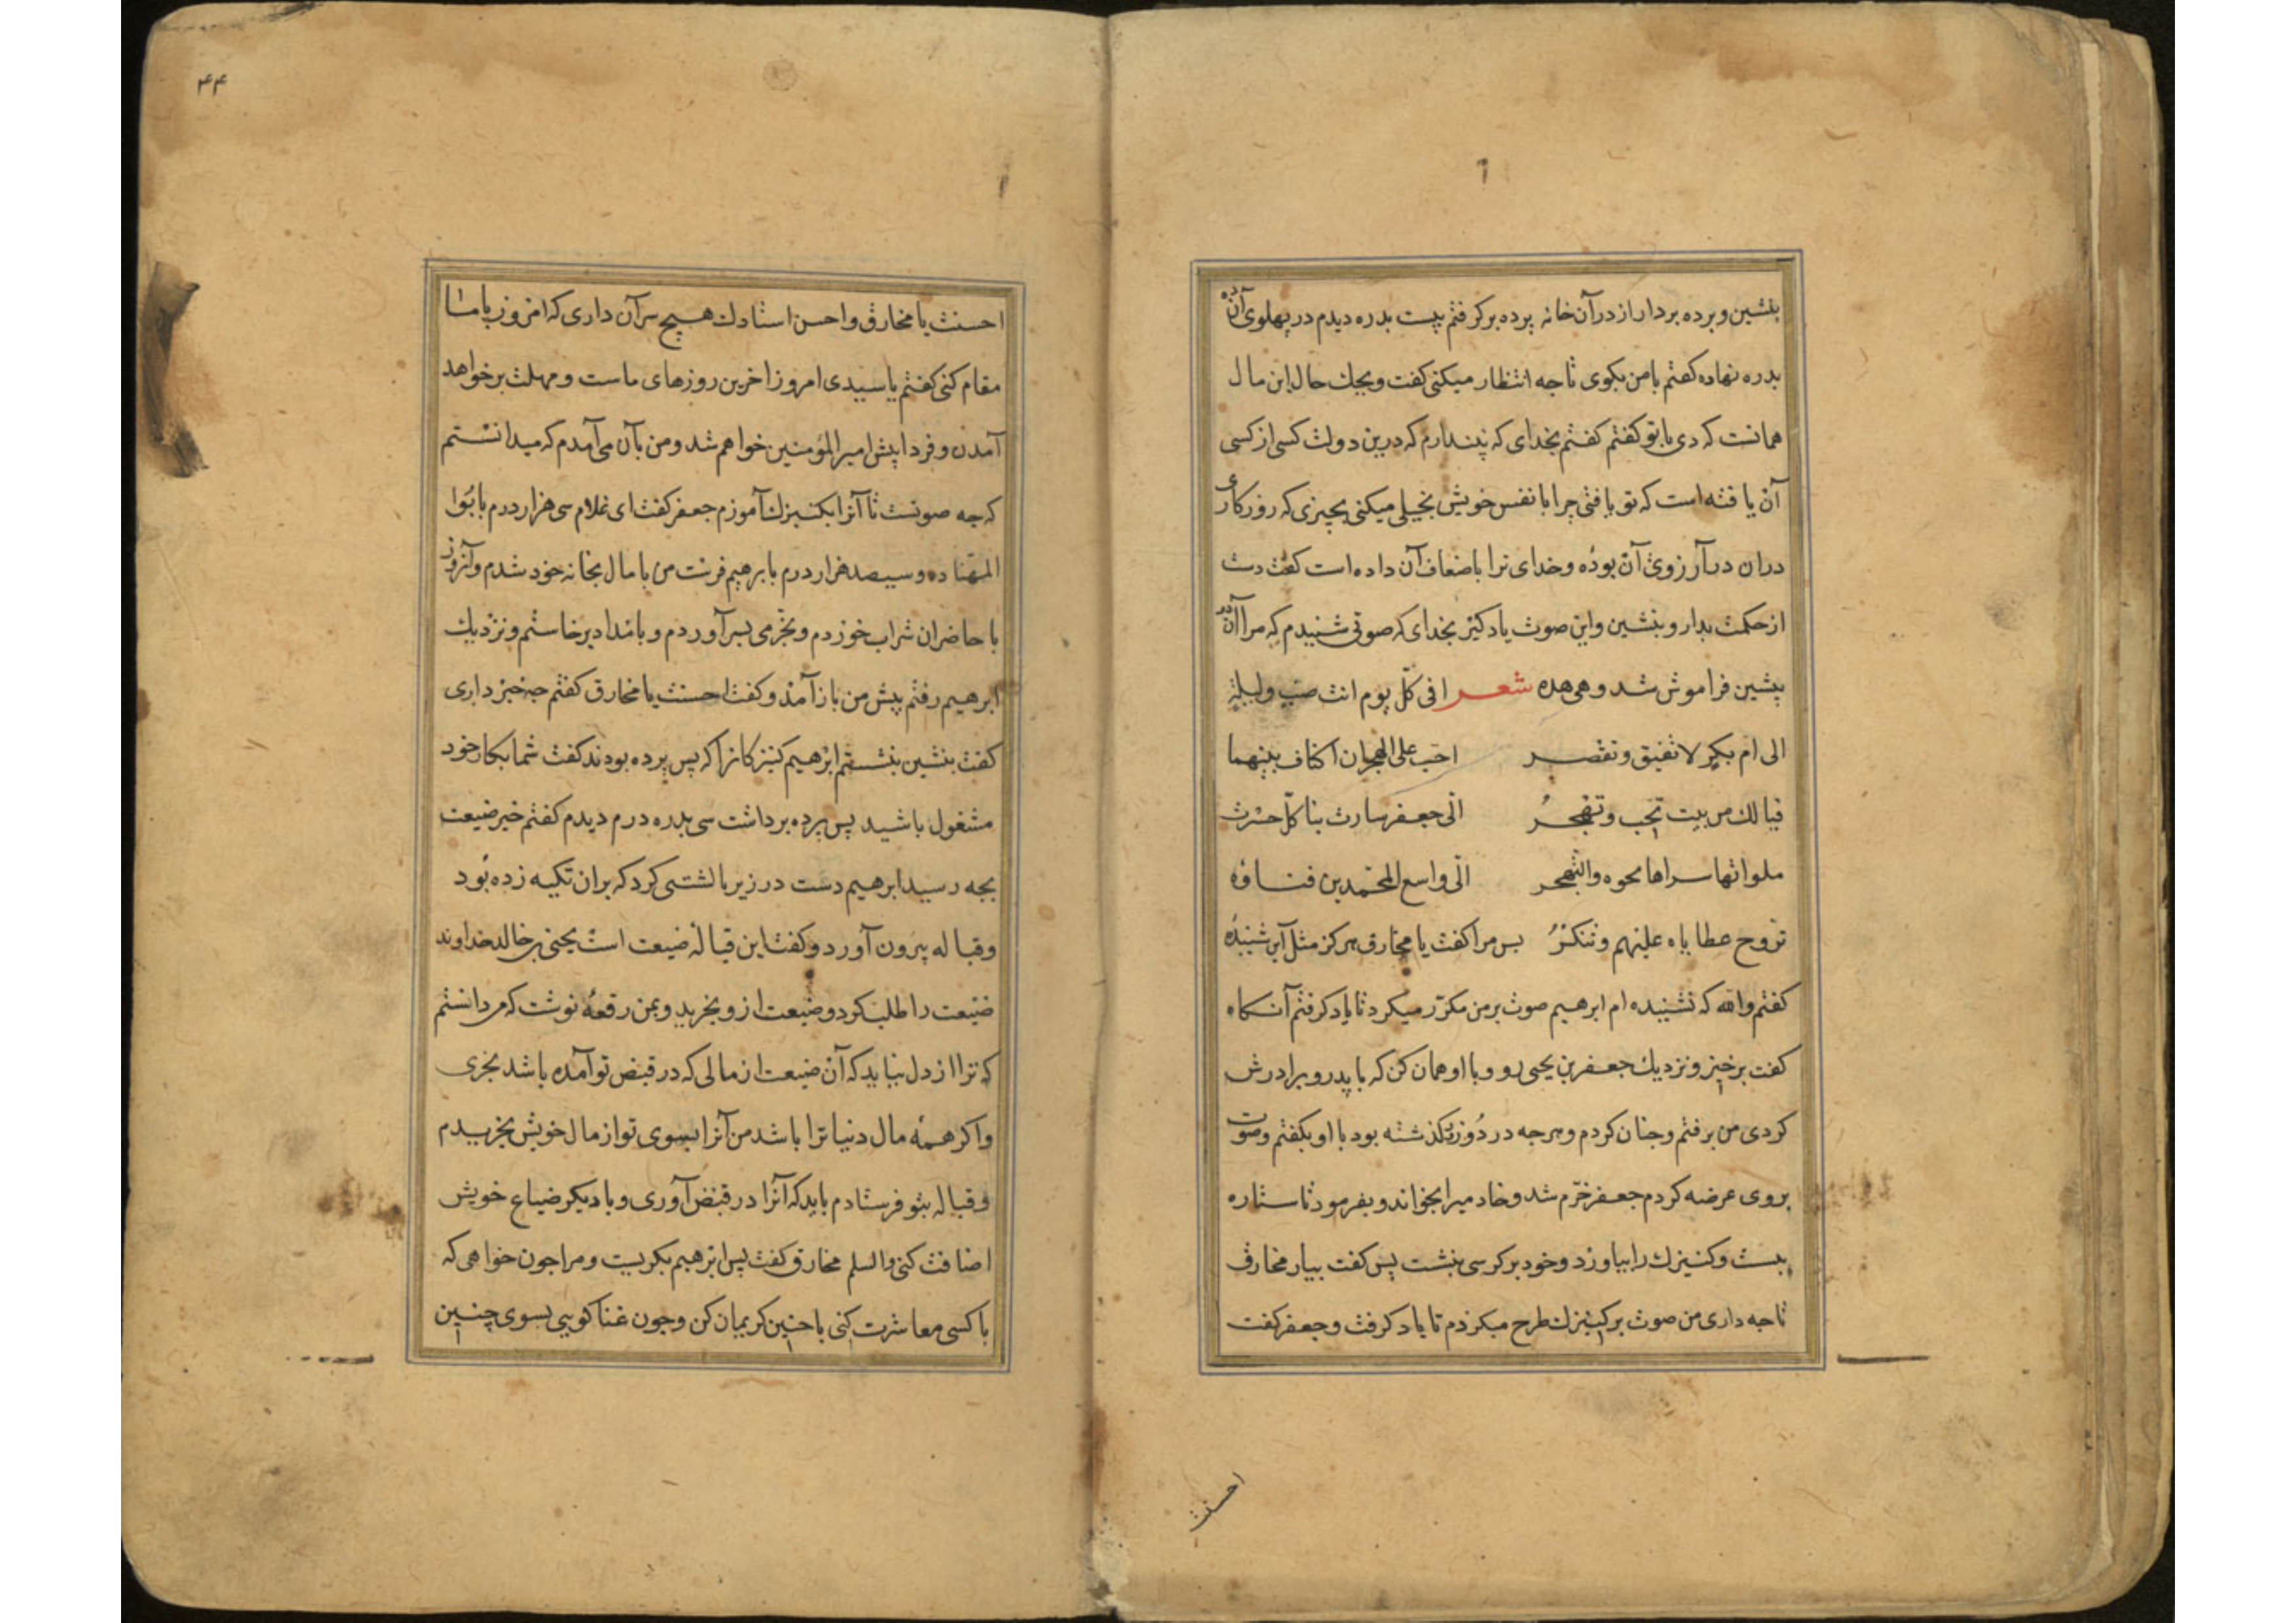 بنشین و برده بردار از در آن خانه پرده برکرفتم بیست بدره دیدم در پهلوی آن ده
بدره نهاده کفتم با من بکوی تا جه انتظار میکنی کفت ویحك حال این مال
همانست که دی با تو کفتم کفتم بخدای که پندارم که درین دولت کسی از کسی
آن یافته است که تو یافتی چرا با نفس خویش بخیلی میکنی بچیزی که روزکاری
دران در آرزوی آن بوده و خدای ترا باضعاف آن داده است کفت دست
از حکمت بدار و بنشین و این صوت یاد کیر بخدای که صوتی شنیدم که مرا آن
پیشین فراموش شد و هی هده شعر افی کلّ یوم انت صب ولیلة
الی ام بکر لا تفیق وتقصر احب علی الهجران اکناف بیتهما
فیا لك من بیت تحب وتهجر الی جعفر سارت بنا کلّ حسرت
ملواتها سراها محوه والتهجر الی واسع للمحتمدین فناؤه
تروح عطایاه علیهم وتنکر بس مرا کفت یا مخارق هرکز مثل این شنیدهٔ
کفتم والله که نشنیده ام ابرهیم صوت بر من مکرّر میکرد تا یاد کرفتم آنکاه
کفت برخیز و نزدیك جعفر بن یحیی رو و با او همان کن که با پدر و برادرش
کردی من برفتم و جنان کردم و هرجه در دو روز کذشته بود با او بکفتم و صوت
بروی عرضه کردم جعفر خرّم شد و خادمیرا بخواند و بفرمود تا ستاره
ببست و کنیزك را بیاورد و خود بر کرسی بنشست پس کفت بیار مخارق
تا جه داری من صوت بر کنیزك طرح میکردم تا یاد کرفت و جعفر کفت
احسنت
۴۴
احسنت یا مخارق و احسن استادك هیچ سر آن داری که امروز با ما
مقام کنی کفتم یا سیدی امروز آخرین روزهای ماست و مهلت برخواهد
آمدن و فردا پیش امیر المؤمنین خواهم شد و من بآن می آمدم که میدانستم
که جه صوتست تا آنرا بکنیزك آموزم جعفر کفت ای غلام سی هزار درم بابو
المهنا ده و سیصد هزار درم بابرهیم فرست من با مال بخانه خود شدم و آن روز
با حاضران شراب خوردم و بخرّمی بسر آوردم و بامداد برخاستم و نزدیك
ابرهیم رفتم پیش من باز آمد و کفت احسنت یا مخارق کفتم جه خبر داری
کفت بنشین بنشستم ابرهیم کنیزکانرا که پس پرده بودند کفت شما بکار خود
مشغول باشید پس پرده برداشت سی بدره درم دیدم کفتم خبر ضیعت
بجه رسید ابرهیم دست در زیر بالشتی کرد که بران تکیه زده بود
و قباله بیرون آورد و کفت این قبالهٔ ضیعت است یحیی بن خالد خداوند
ضیعت را طلب کرد و ضیعت ازو بخرید و بمن رقعهٔ نوشت که می دانستم
که ترا از دل نیاید که آن ضیعت از مالی که در قبض تو آمده باشد بخری
و اکر همه مال دنیا ترا باشد من آنرا بسوی تو از مال خویش بخریدم
و قباله بتو فرستادم باید که آنرا در قبض آوری و با دیکر ضیاع خویش
اضافت کنی والسلم مخارق کفت پس ابرهیم بکریست و مرا جون خواهی که
با کسی معاشرت کنی با جنین کریمان کن و جون غنا کویی بسوی چنین